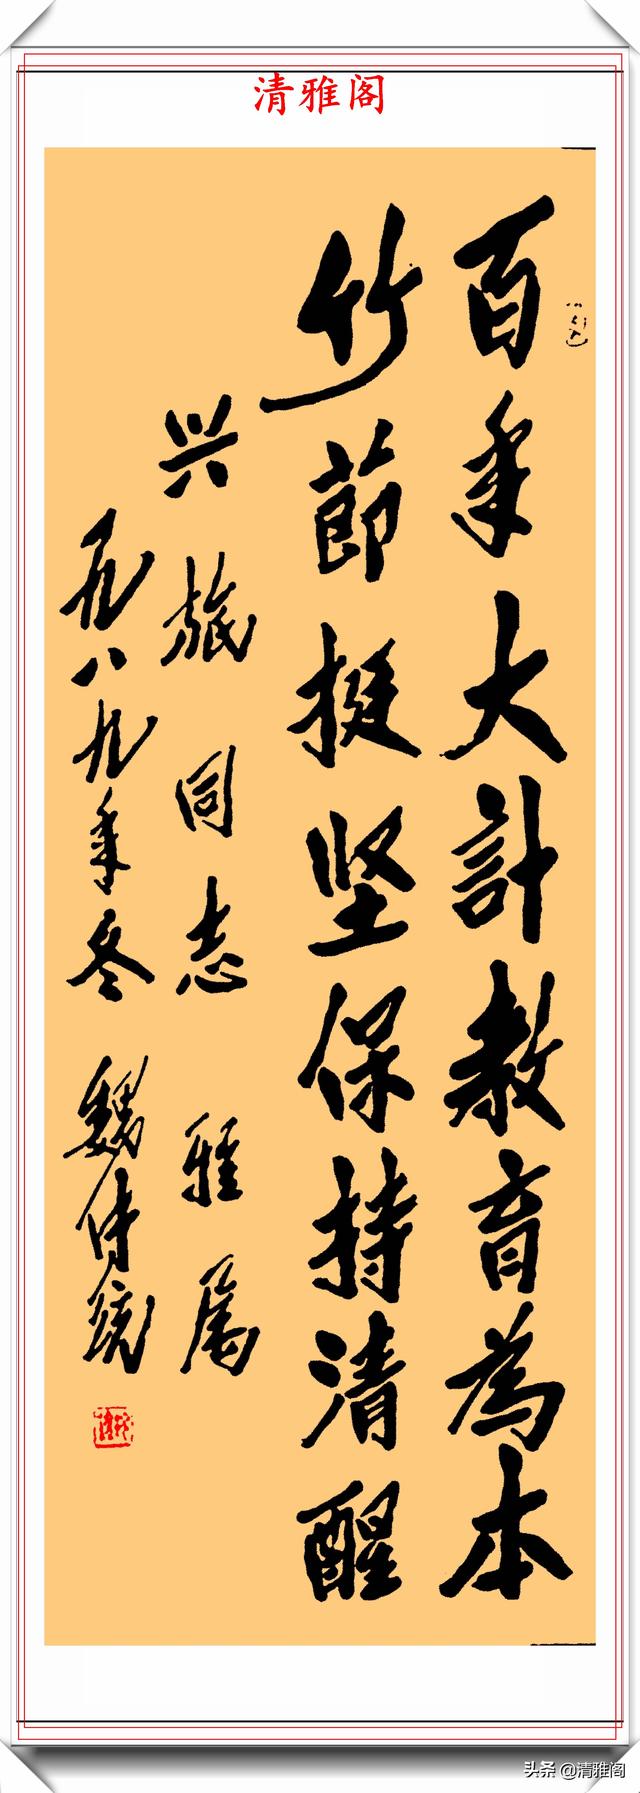 清雅阁
百年大計教育為本
竹節挺坚保持清醒
兴旅同志雅属
一九八九年冬 魏传统
头条 @清雅阁